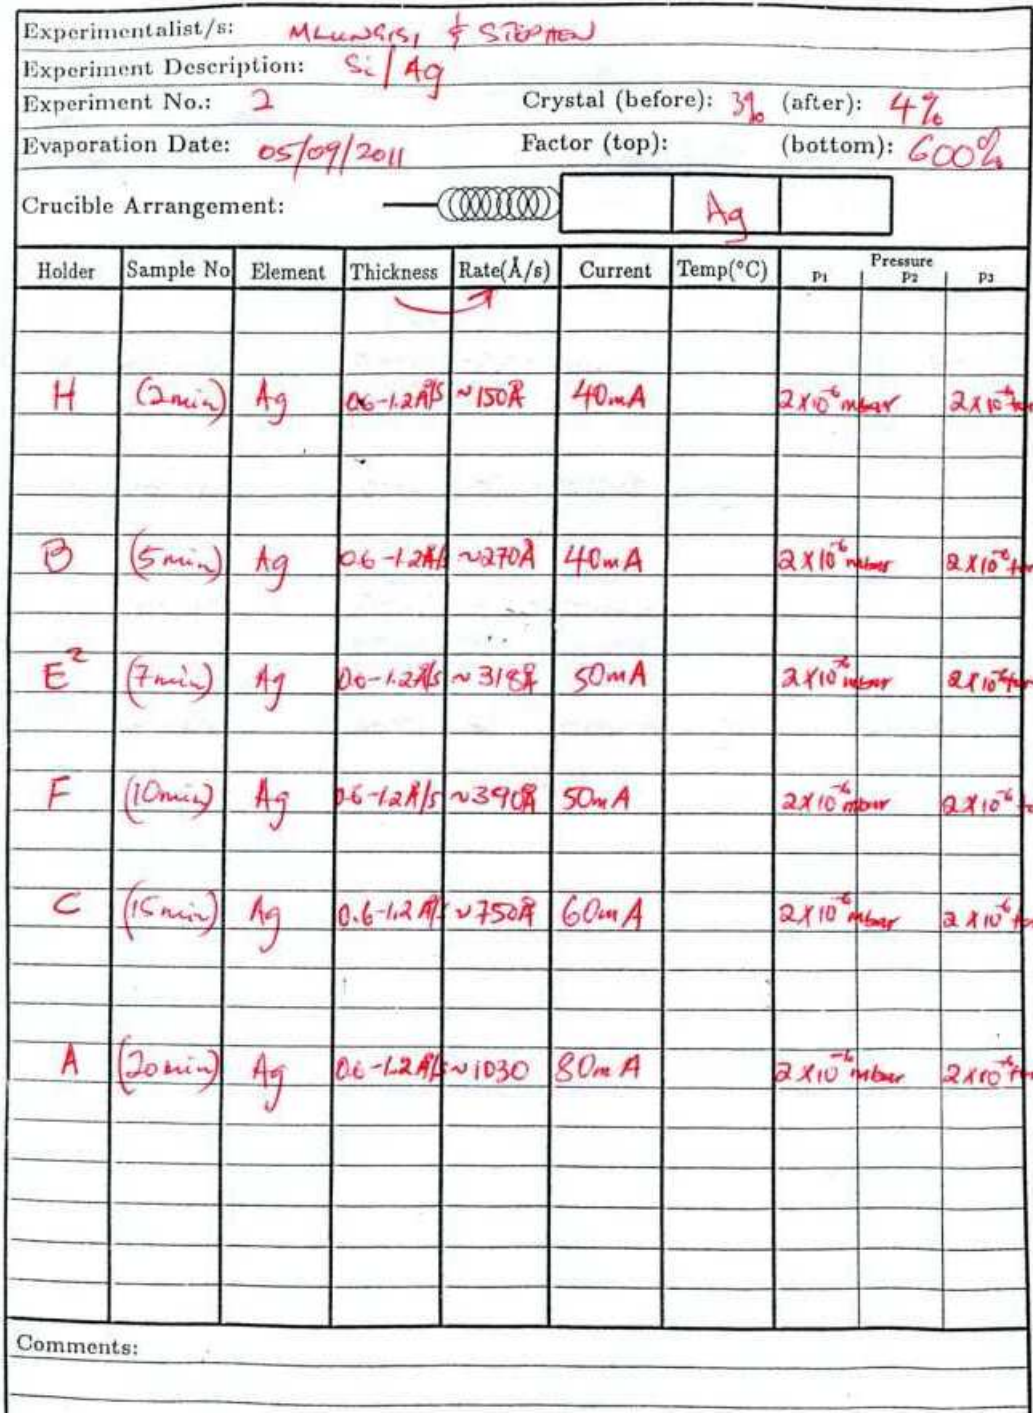 Experimentalist/s: MLUNGISI & STEPHEN
Experiment Description: Si/Ag
Experiment No.: 2 Crystal (before): 3% (after): 4%
Evaporation Date: 05/09/2011 Factor (top): (bottom): 600%
Crucible Arrangement: Ag
Holder Sample No Element Thickness Rate(Å/s) Current Temp(°C) Pressure P1 P2 P3
H (2min) Ag 0.6-1.2Å/s ~150Å 40mA 2×10⁻⁶ mbar 2×10⁻⁶
B (5min) Ag 0.6-1.2Å/s ~270Å 40mA 2×10⁻⁶ mbar 2×10⁻⁶
E² (7min) Ag 0.6-1.2Å/s ~318Å 50mA 2×10⁻⁶ mbar 2×10⁻⁶
F (10min) Ag 0.6-1.2Å/s ~390Å 50mA 2×10⁻⁶ mbar 2×10⁻⁶
C (15min) Ag 0.6-1.2Å/s ~750Å 60mA 2×10⁻⁶ mbar 2×10⁻⁶
A (20min) Ag 0.6-1.2Å/s ~1030 80mA 2×10⁻⁶ mbar 2×10⁻⁶
Comments: